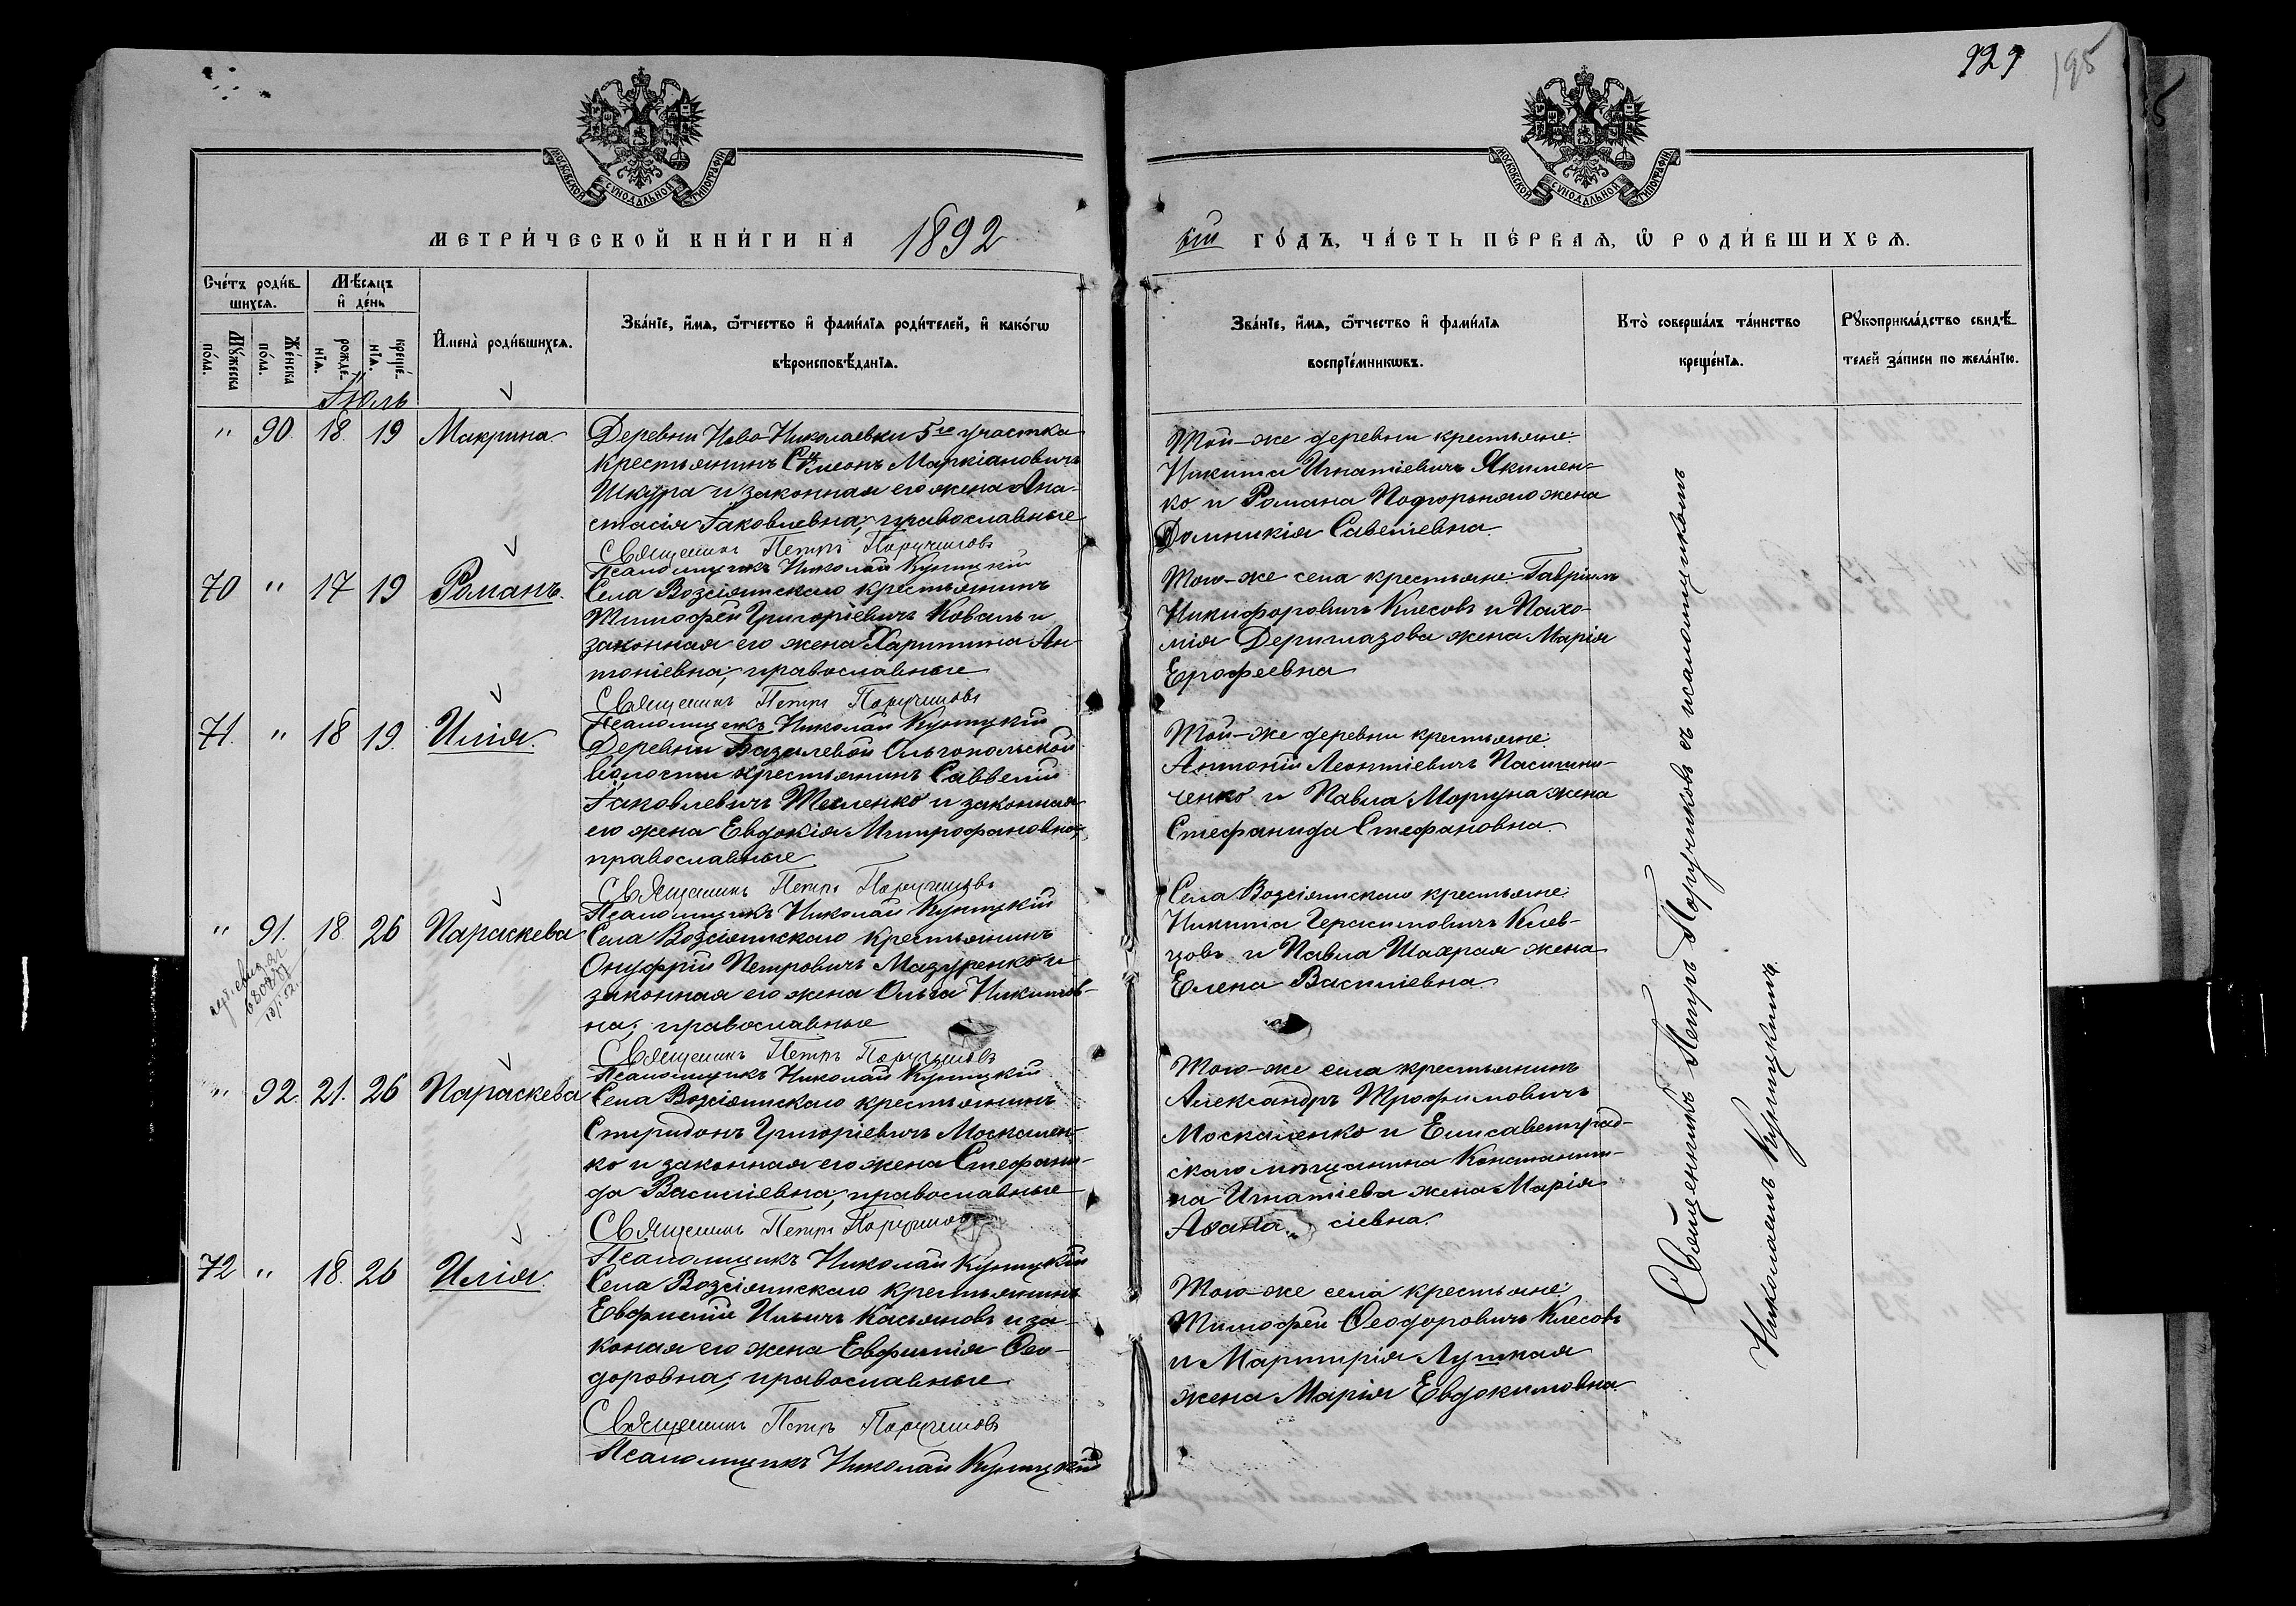 929
195
5
МОСКОВСКОЙ СУНОДАЛЬНОЙ ТИПОГРАФІИ
МОСКОВСКОЙ СУНОДАЛЬНОЙ ТИПОГРАФІИ
МЕТРИ́ЧЕСКОЙ КНИ́ГИ НА 1892
ый ГО́ДЪ, ЧА́СТЬ ПЕ́РВАѦ, Ѿ РОДИ́ВШИХСѦ.
Сче́тъ роди́в-
шихсѧ.
Мѣ́сѧцъ
и҆ де́нь
Му́жеска
по́ла.
Же́нска
по́ла.
рожде́-
нїѧ.
креще́-
нїѧ.
И҆мена̀ роди́вшихсѧ.
Зва́нїе, и҆́мѧ, ѻ҆́тчество и҆ фами́лїѧ роди́телей, и҆ како́гѡ
вѣроисповѣ́данїѧ.
Зва́нїе, и҆́мѧ, ѻ҆́тчество и҆ фами́лїѧ
воспрїе́мникѡвъ.
Кто̀ соверша́лъ та́инство
креще́нїѧ.
Рꙋкоприкла́дство свидѣ́-
телей за́писи по жела́нїю.
Іюль
" 90. 18. 19 Макрина.
Деревни Ново-Николаевки 5го участка
крестьянинъ Симеонъ Маркіановичъ
Шкура и законная его жена Ана-
стасія Іаковлевна; православные
Священникъ Петръ Поручиковъ
Псаломщикъ Николай Куницкій
Той-же деревни крестьяне:
Никита Игнатіевичъ Якимен-
ко и Романа Подгорьняго жена
Домникія Саветіевна.
70 " 17 19 Романъ.
Села Возсіятскаго крестьянинъ
Тимофей Григоріевичъ Коваль и
законная его жена Харитина Ан-
тоніевна; православные
Священникъ Петръ Поручиковъ
Псаломщикъ Николай Куницкій
Того-же села крестьяне: Гавріилъ
Никифоровичъ Клесовъ и Пахо-
мія Дериглазова жена Марія
Ерофеевна
71. " 18 19. Илія.
Деревни Базилевой Ольгопольской
волости крестьянинъ Савветій
Іаковлевичъ Тесленко и законная
его жена Евдокія Митрофановна,
православные
Священникъ Петръ Поручиковъ
Псаломщикъ Николай Куницкій
Той-же деревни крестьяне:
Антоній Леонтіевичъ Пасични-
ченко и Павла Моргуна жена
Стефанида Стефановна.
" 91. 18 26 Параскева
Села Возсіятскаго крестьянинъ
Онуфрій Петровичъ Мазуренко и
законная его жена Ольга Никитов-
на; православные
Священникъ Петръ Поручиковъ
Псаломщикъ Николай Куницкій
Села Возсіятскаго крестьяне:
Никита Герасимовичъ Клев-
цовъ и Павла Шахрая жена
Елена Василіевна
" 92. 21. 26 Параскева
Села Возсіятскаго крестьянинъ
Спиридонъ Григоріевичъ Москален-
ко и законная его жена Стефани-
да Василіевна, православные
Священникъ Петръ Поручиковъ
Псаломщикъ Николай Куницкій
Того-же села крестьянинъ
Александръ Трофимовичъ
Москаленко и Елисаветград-
скаго мѣщанина Константи-
на Игнатіева жена Марія
Аѳана сіевна.
72 " 18. 26 Илія.
Села Возсіятскаго крестьянинъ
Евфмеій Ильичъ Касьяновъ и за-
коная его жена Евфимія Ѳео-
доровна; православные
Священникъ Петръ Поручиковъ
Псаломщикъ Николай Куницкій
Того-же села крестьяне:
Тимофей Ѳеодоровичъ Клесовъ
и Мартирія Луцкая
жена Марія Евдокимовна.
Священникъ Петръ Поручиковъ съ псаломщикомъ
Николаемъ Куницкимъ.